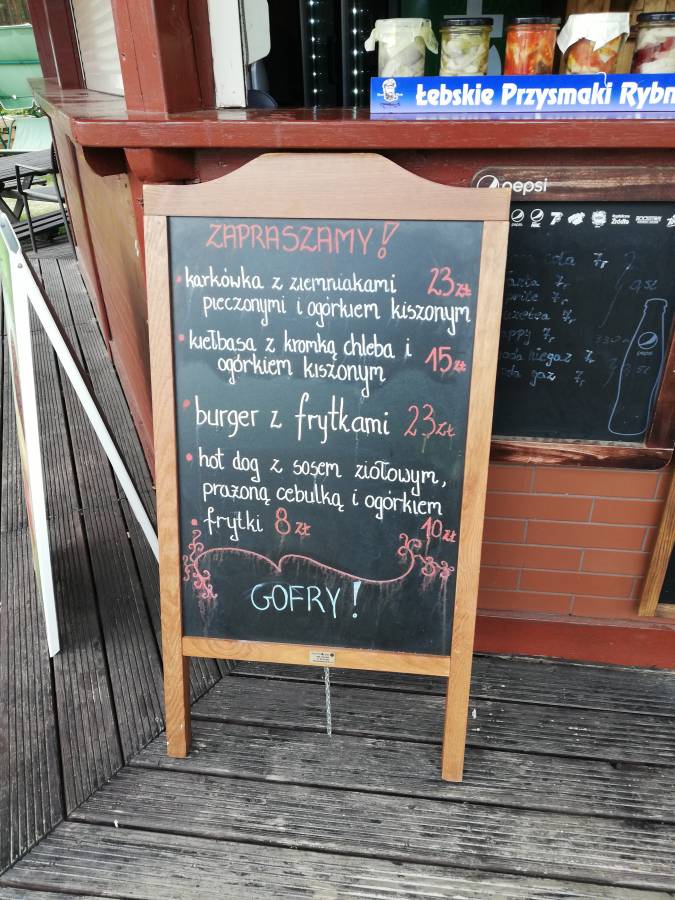 Łebskie Przysmaki Rybn
pepsi
ZAPRASZAMY!
karkówka z ziemniakami 23 zł
pieczonymi i ogórkiem kiszonym
kiełbasa z kromką chleba i
ogórkiem kiszonym 15 zł
burger z frytkami 23 zł
hot dog z sosem ziołowym,
prażoną cebulką i ogórkiem
10 zł
frytki 8 zł
GOFRY!
cola 7,-
7,-
7,-
7,-
7,-
niegaz 7,-
gaz 7,-
pepsi